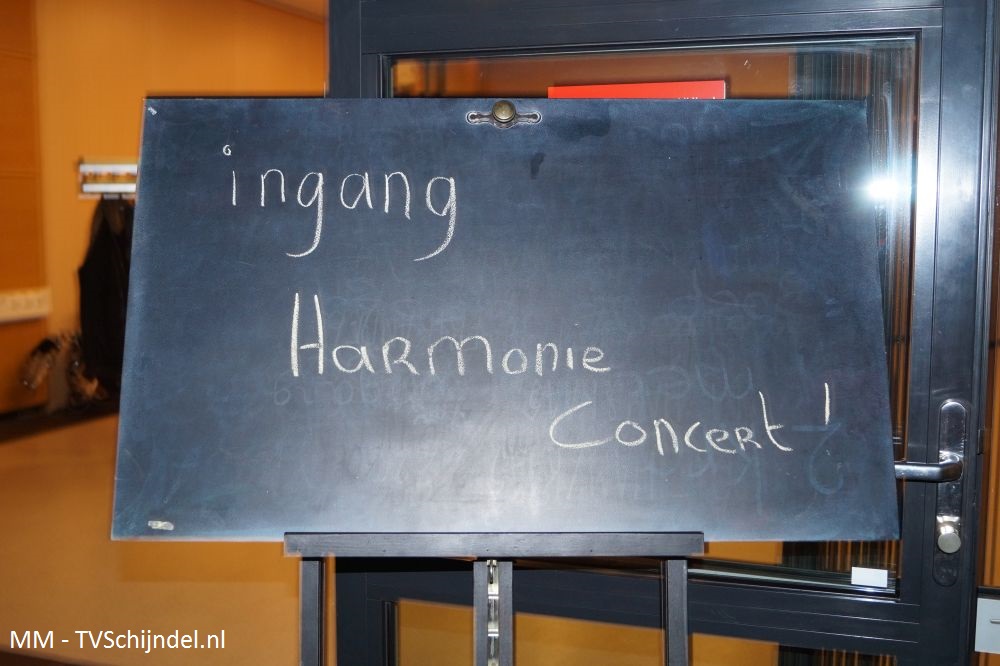 ingang
Harmonie
Concert!
MM - TVSchijndel.nl